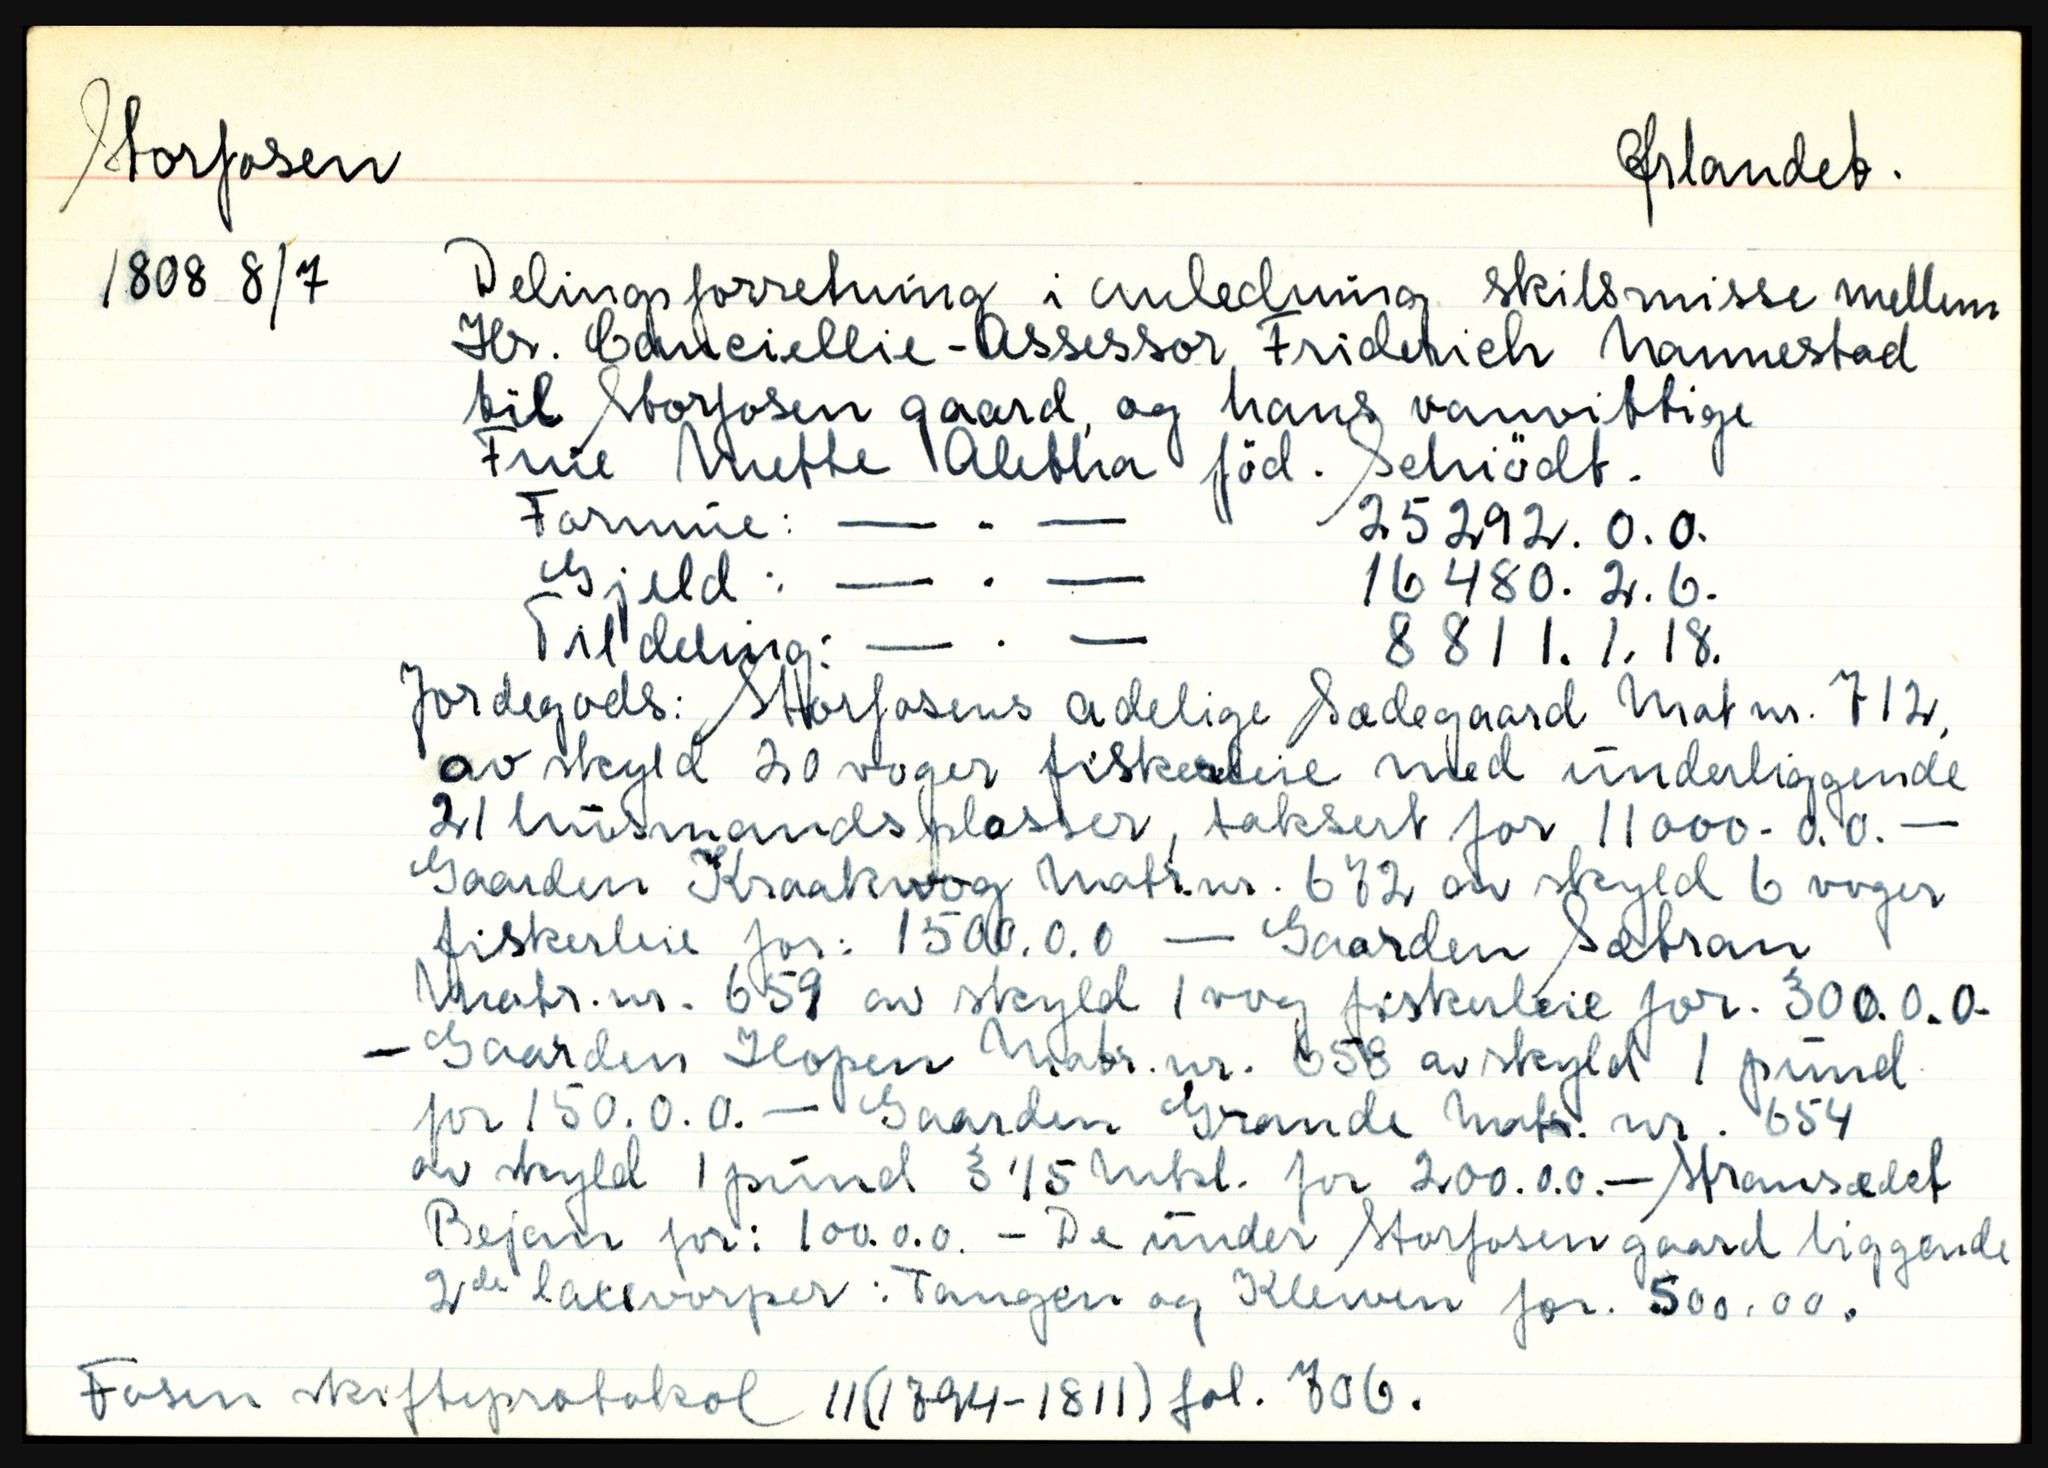 Storfosen Ørlandet.
1808 8/7 Delingsforretning i anledning skilsmisse mellem
Hr. Canciellie-Assessor Friderich Nannestad
til Storfosen gaard, og hans vanvittige
Frue Mette Aletha föd. Schiödt.
Formue: — . — 25292. 0. 0.
Gjeld: — . — 16480. 2. 6.
Til deling: — . — 8811. 1. 18.
Jordegods: Storfosens adelige Sædegaard Matnr. 712,
av skyld 20 voger fiskerleie med underliggende
21 husmandsplasser, taksert for 11000-0.0. —
Gaarden Kraakvog Matr.nr. 672 av skyld 6 voger
fiskerleie for: 1500.0.0 — Gaarden Sætran
Matr.nr. 659 av skyld 1 vog fiskerleie for. 300.0.0-
— Gaarden Hopen Matr.nr. 658 av skyld 1 pund
for 150.0.0. — Gaarden Grande Matr. nr. 654
av skyld 1 pund 3 1/5 Mkl. for 200.0.0. — Stransædet
Bejan for: 100.0.0. — De under Storfosen gaard liggende
2de laxevorper: Tangen og Klewen for. 500.00.
Fosen skifteprotokol 11(1794-1811) fol. 706.